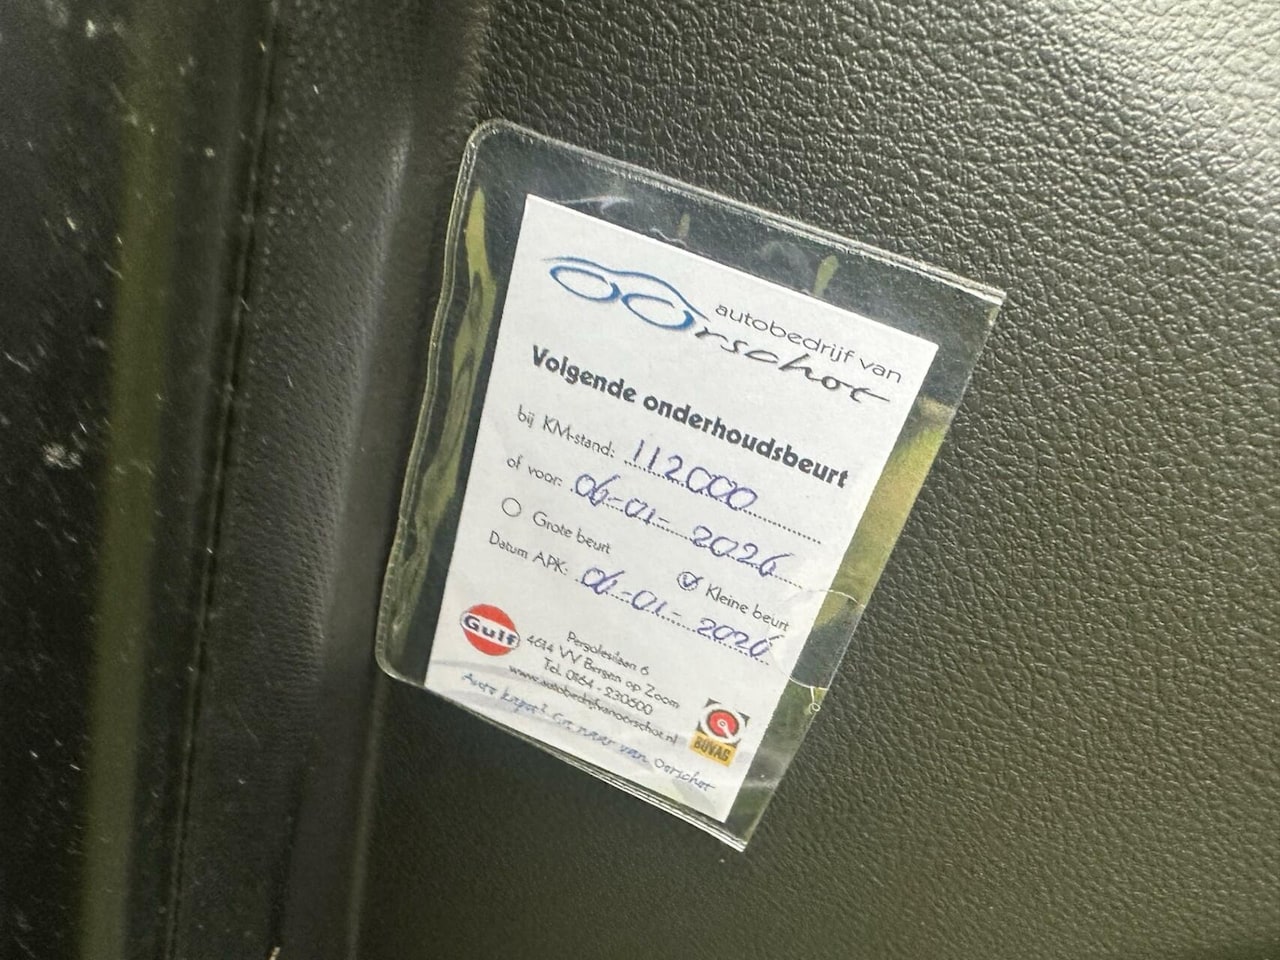 autobedrijf van
oorschot
Volgende onderhoudsbeurt
bij KM-stand: 112000
of voor: 06-01-2026
Grote beurt Kleine beurt
Datum APK: 06-01-2026
Gulf
Pergoleslaan 6
4614 VV Bergen op Zoom
Tel. 0164 - 230500
www.autobedrijfvanoorschot.nl
BOVAG
Auto kapot? Ga naar van Oorschot